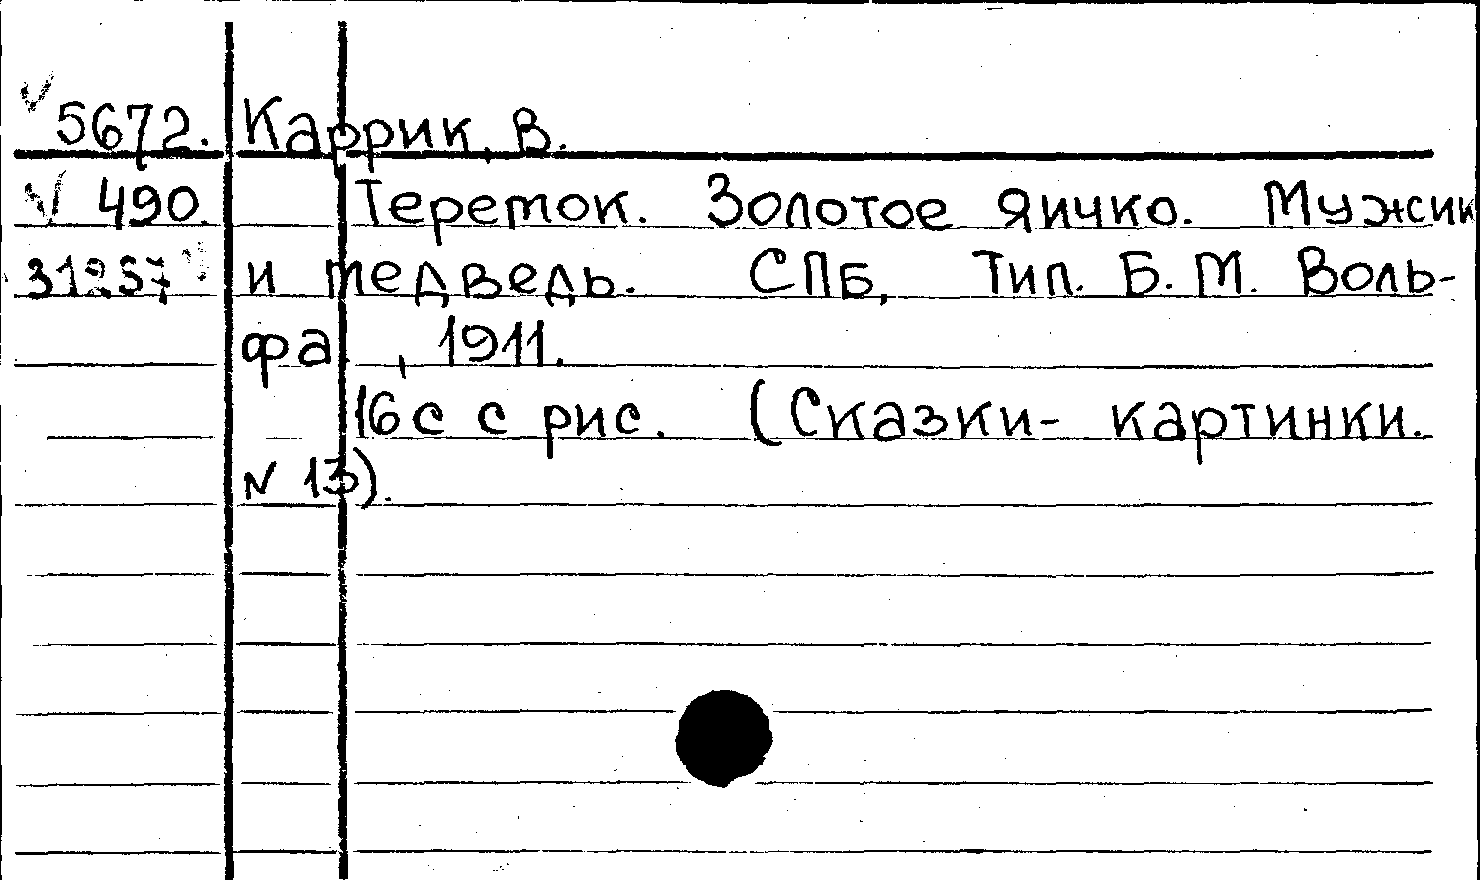 5672. Каррик, В.
490. Теремок. Золотое яичко. Мужик
31257 и медведь. СПБ, Тип. Б. М. Воль-
фа, 1911.
16 с с рис. (Сказки- картинки.
N 13).